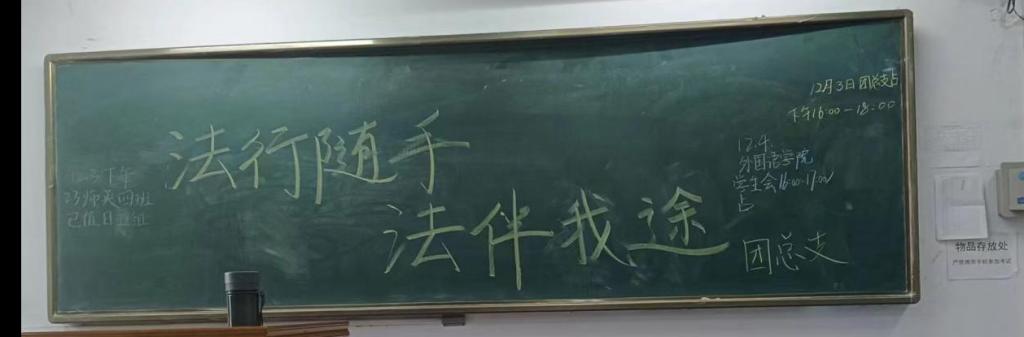 法行随手
法伴我途
团总支
12月3日团总支占
下午16:00-18:00
12.4.
外国语学院
学生会16:00-17:00
占
12.3下午
23师英四班
已值日
物品存放处
严禁携带手机参加考试